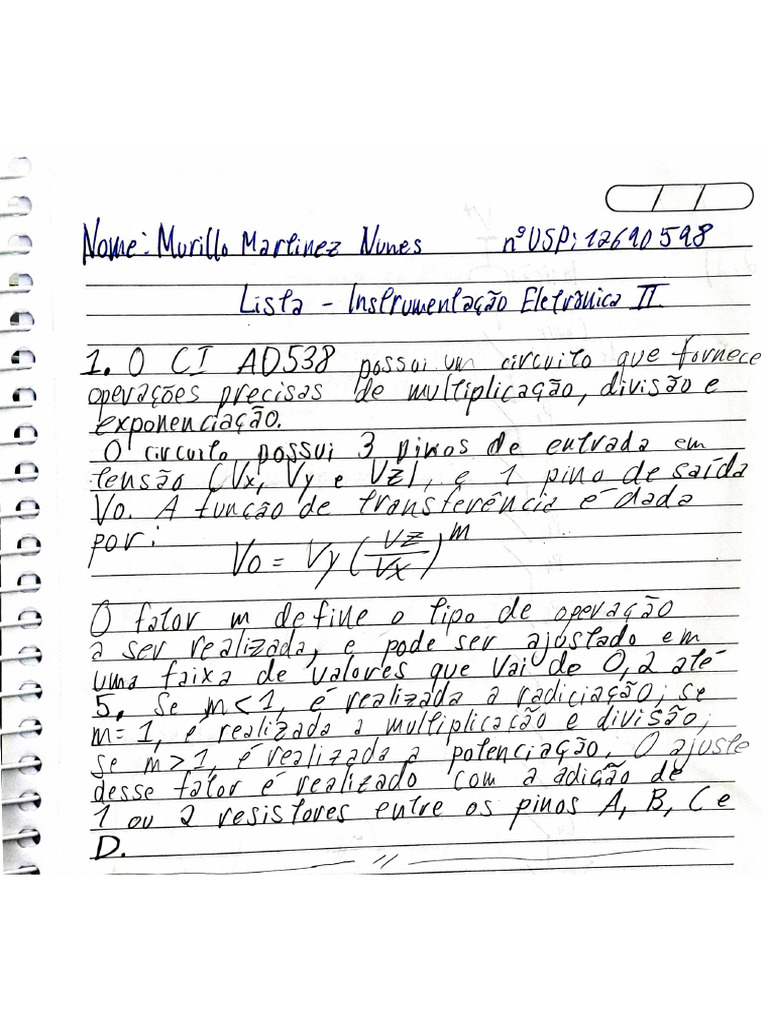 Nome: Murillo Martinez Nunes nº USP: 12690598
Lista - Instrumentação Eletrônica II
1. O CI AD538 possui um circuito que fornece
operações precisas de multiplicação, divisão e
exponenciação.
O circuito possui 3 pinos de entrada em
tensão (Vx, Vy e Vz), e 1 pino de saída
Vo. A função de transferência é dada
por:
Vo = Vy (Vz/Vx)^m
O fator m define o tipo de operação
a ser realizada, e pode ser ajustado em
uma faixa de valores que vai de 0,2 até
5. Se m < 1, é realizada a radiciação; se
m = 1, é realizada a multiplicação e divisão;
se m > 1, é realizada a potenciação. O ajuste
desse fator é realizado com a adição de
1 ou 2 resistores entre os pinos A, B, C e
D.